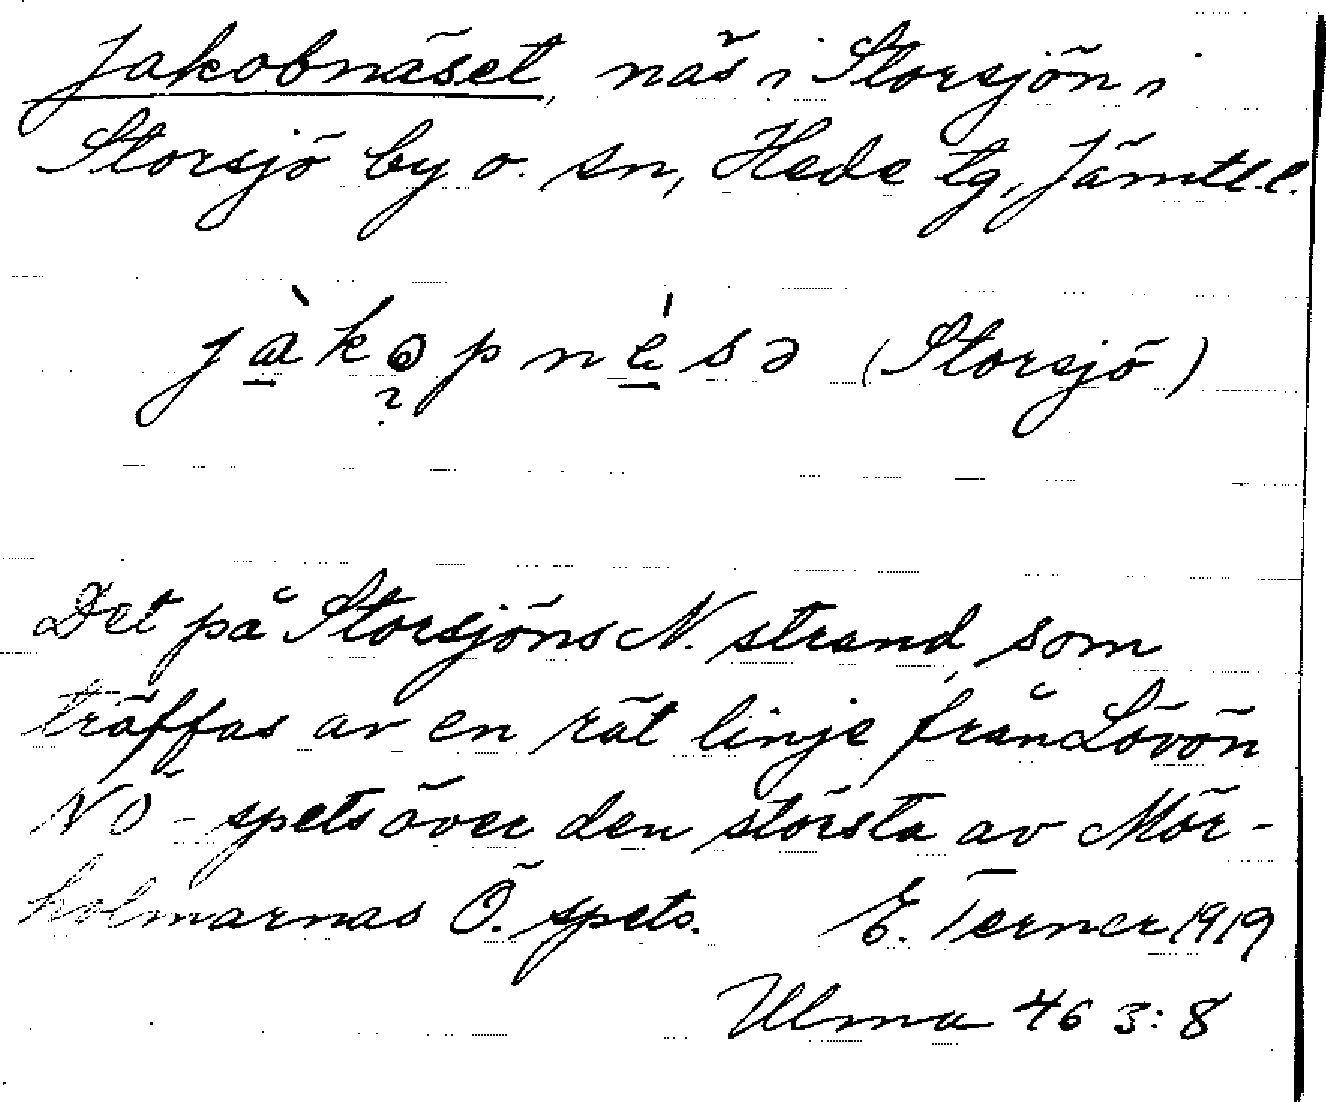 Jakobnäset, näs i Storsjön i
Storsjö by o. sn, Hede tg, Jämtl.l.
jàkəpnésə (Storsjö)
?
Det på Storsjöns N. strand, som
träffas av en rät linje från Lövön
NÖ-spets över den största av Mör-
holmarnas Ö. spets. E. Terner 1919
Ulma 46 3:8